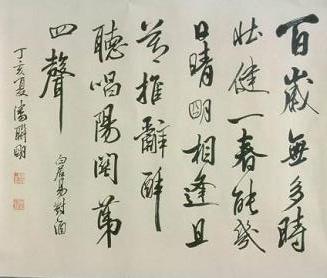 百歲無多時
壯健一春能幾
日晴明相逢且
莫推辭醉
聽唱陽關第
四聲
白居易對酒
丁亥夏潘聯明